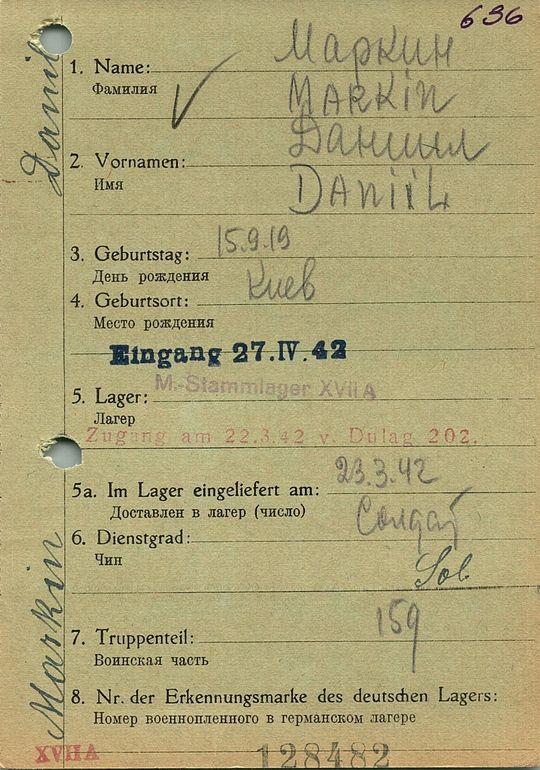 636
Маркин
1. Name:
Фамилия
MARKIN
Даниил
2. Vornamen:
Имя
DANIIL
3. Geburtstag: 15.9.19
День рождения
4. Geburtsort: Киев
Место рождения
Eingang 27.IV.42
M.-Stammlager XVII A
5. Lager:
Лагер
Zugang am 22.3.42 v. Dulag 202.
5a. Im Lager eingeliefert am: 23.3.42
Доставлен в лагер (число)
Солдат
6. Dienstgrad:
Чин
Sol
159
7. Truppenteil:
Воинская часть
8. Nr. der Erkennungsmarke des deutschen Lagers:
Номер военнопленного в германском лагере
XVII A
128482
Markin Daniil